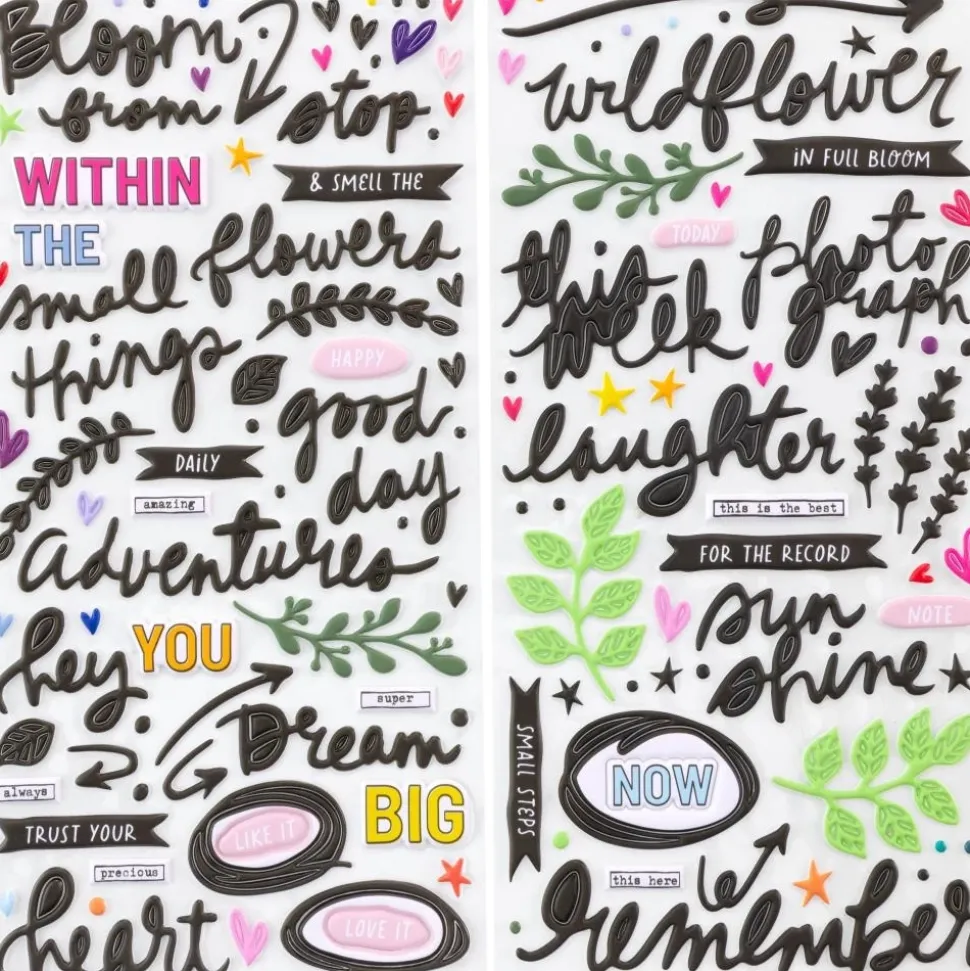 Bloom
from
WITHIN
THE
small
things
stop
& SMELL THE
flowers
HAPPY
good
day
DAILY
amazing
Adventures
hey YOU
super
Dream
BIG
always
TRUST YOUR
precious
heart
LIKE IT
LOVE IT
wildflower
IN FULL BLOOM
TODAY
this
week
photo
graph
laughter
this is the best
FOR THE RECORD
sun
shine
NOTE
SMALL STEPS
NOW
this here
remember